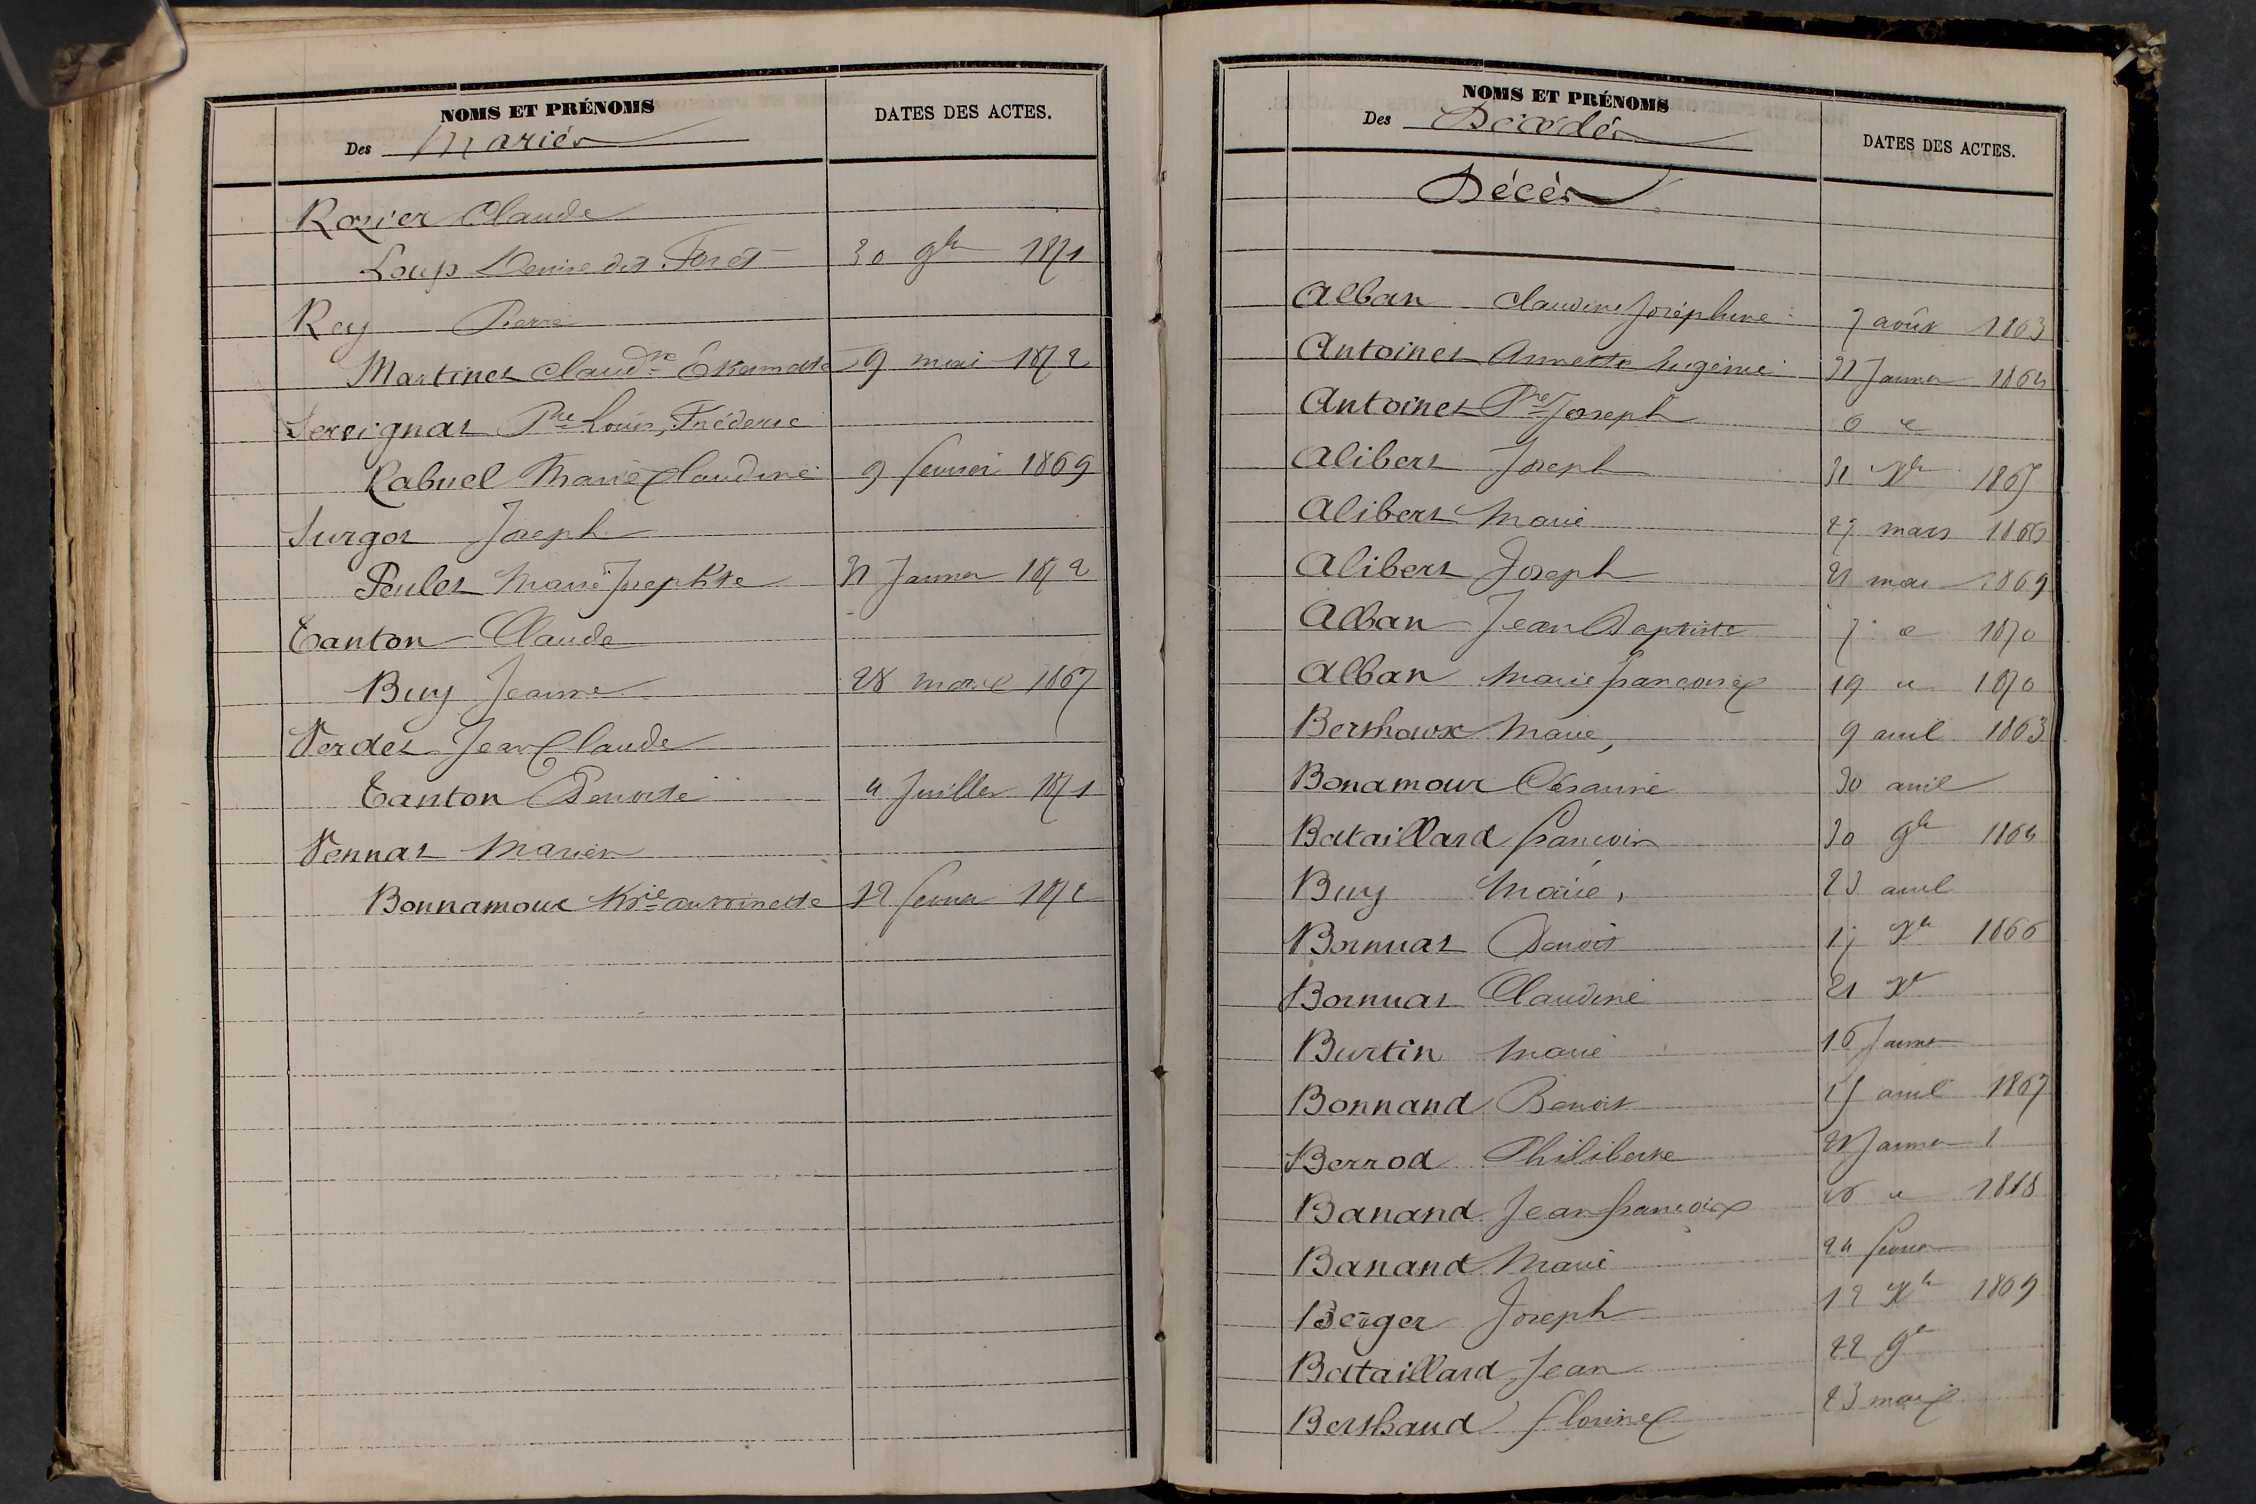 NOMS ET PRÉNOMS
DATES DES ACTES.
Des Mariés
Rozier Claude
Loup Denise dit Forêt 30 9bre 1871
Rey Pierre
Martinet Claudne 9 mai 1872
Servignat Pre Louis, Fréderic
Rabuel Marie Claudine 9 fevrier 1869
Surgot Joseph
Poulet Marie Josephte 31 Janvier 1872
Tanton Claude
Buy Jeanne 28 1867
Verdet Jean Claude
Tanton Benoite 4 Juillet 1871
Vennat Marien
Bonnamour Mrie antoinette 12 fevrier 1872
NOMS ET PRÉNOMS
Des Décédés
DATES DES ACTES.
Décès
Alban Claudine Joséphine 7 août 1863
Antoinet Annette Eugénie 31 Janvier 1864
Antoinet Pre Joseph
Alibert Joseph 31 Xbre 1865
Alibert Marie 27 mars 1866
Alibert Joseph 21 mai 1869
Alban Jean Baptiste 7 " 1870
Alban Marie françoise 19 " 1870
Berthoux Marie, 9 avril 1863
Bonamour Césarine 30 avril
Bataillard françois 30 9bre 1864
Buy Marie, 23 avril
Bornuat Benoit 17 Xbre 1866
Bornuat Claudine 21 Xbre
Burtin Marie 16 Janvier
Bonnand Benoit 15 avril 1867
Berrod Philiberte Janvier
Banand Jean françois 1868
Banand Marie 24 fevrier
Berger Joseph 12 Xbre 1869
Bataillard Jean 22 9bre
Berthaud florine 23